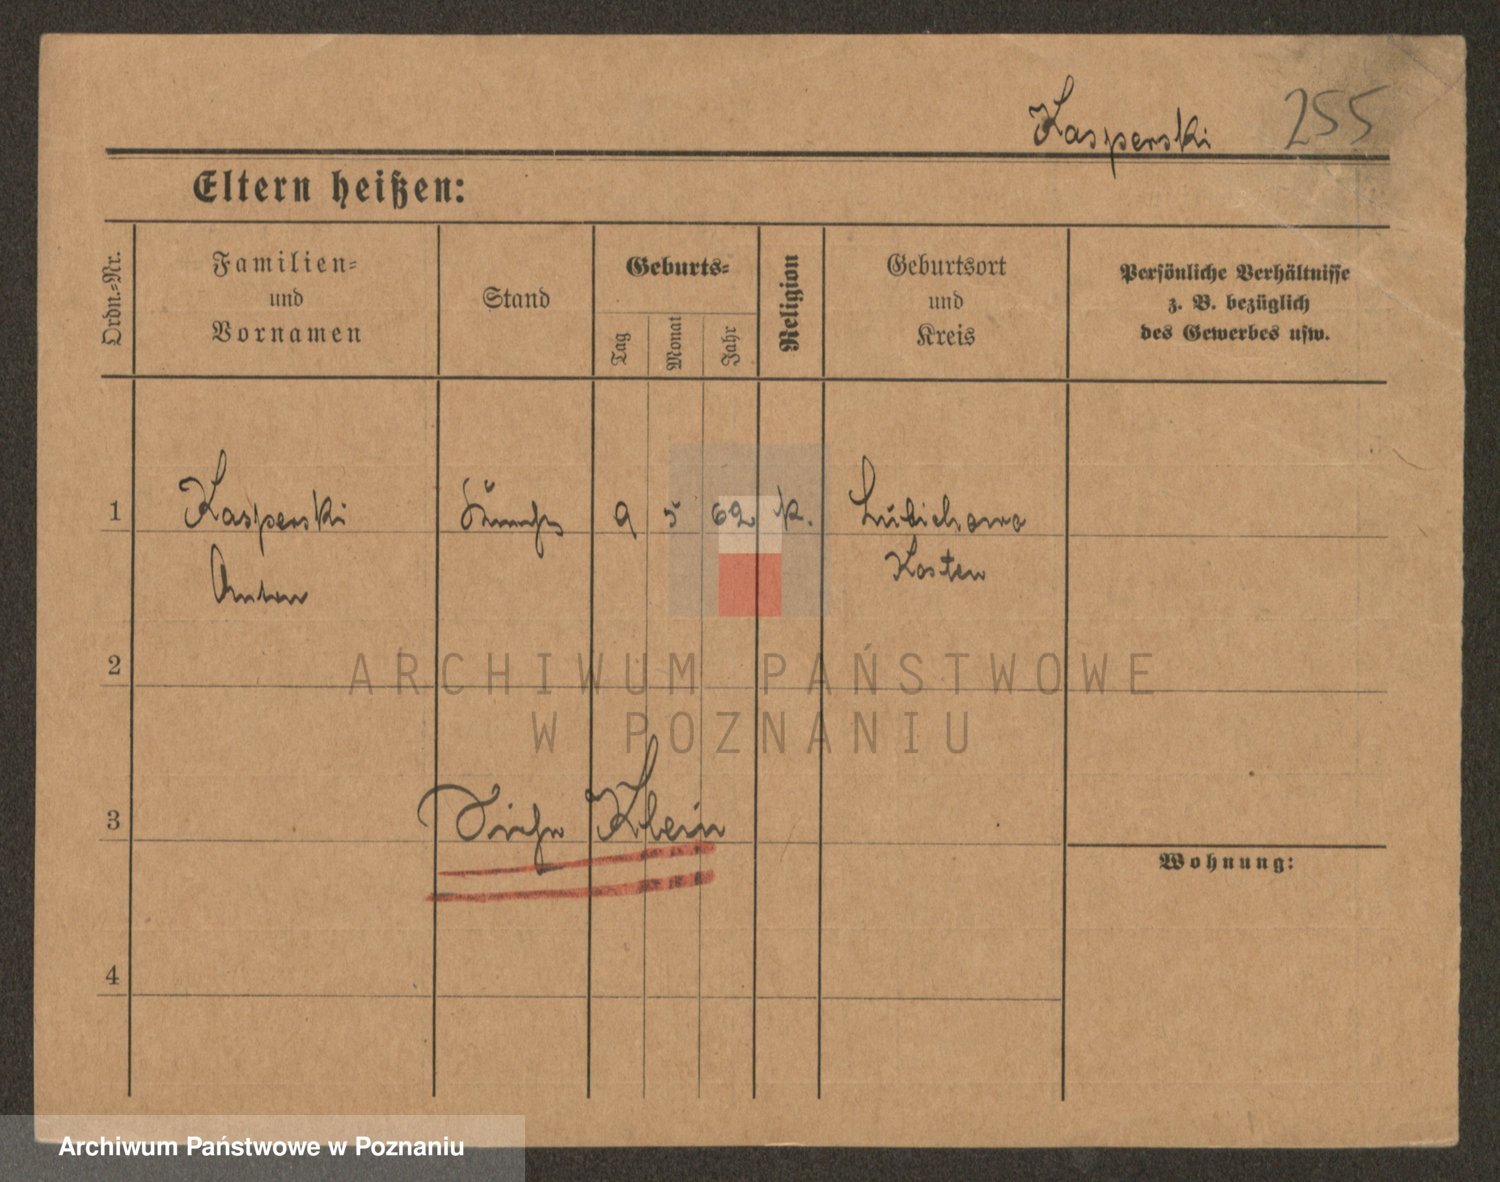 Kasperski 255
Eltern heißen:
Ordn.-Nr.
Familien-
und
Vornamen
Stand
Geburts-
Tag
Monat
Jahr
Religion
Geburtsort
und
Kreis
Persönliche Verhältnisse
z. B. bezüglich
des Gewerbes usw.
1 Kasperski 9 5 62 k.
Kosten
Anton
2
ARCHIWUM PAŃSTWOWE
W POZNANIU
3 Siehe Klein
Wohnung:
4
Archiwum Państwowe w Poznaniu